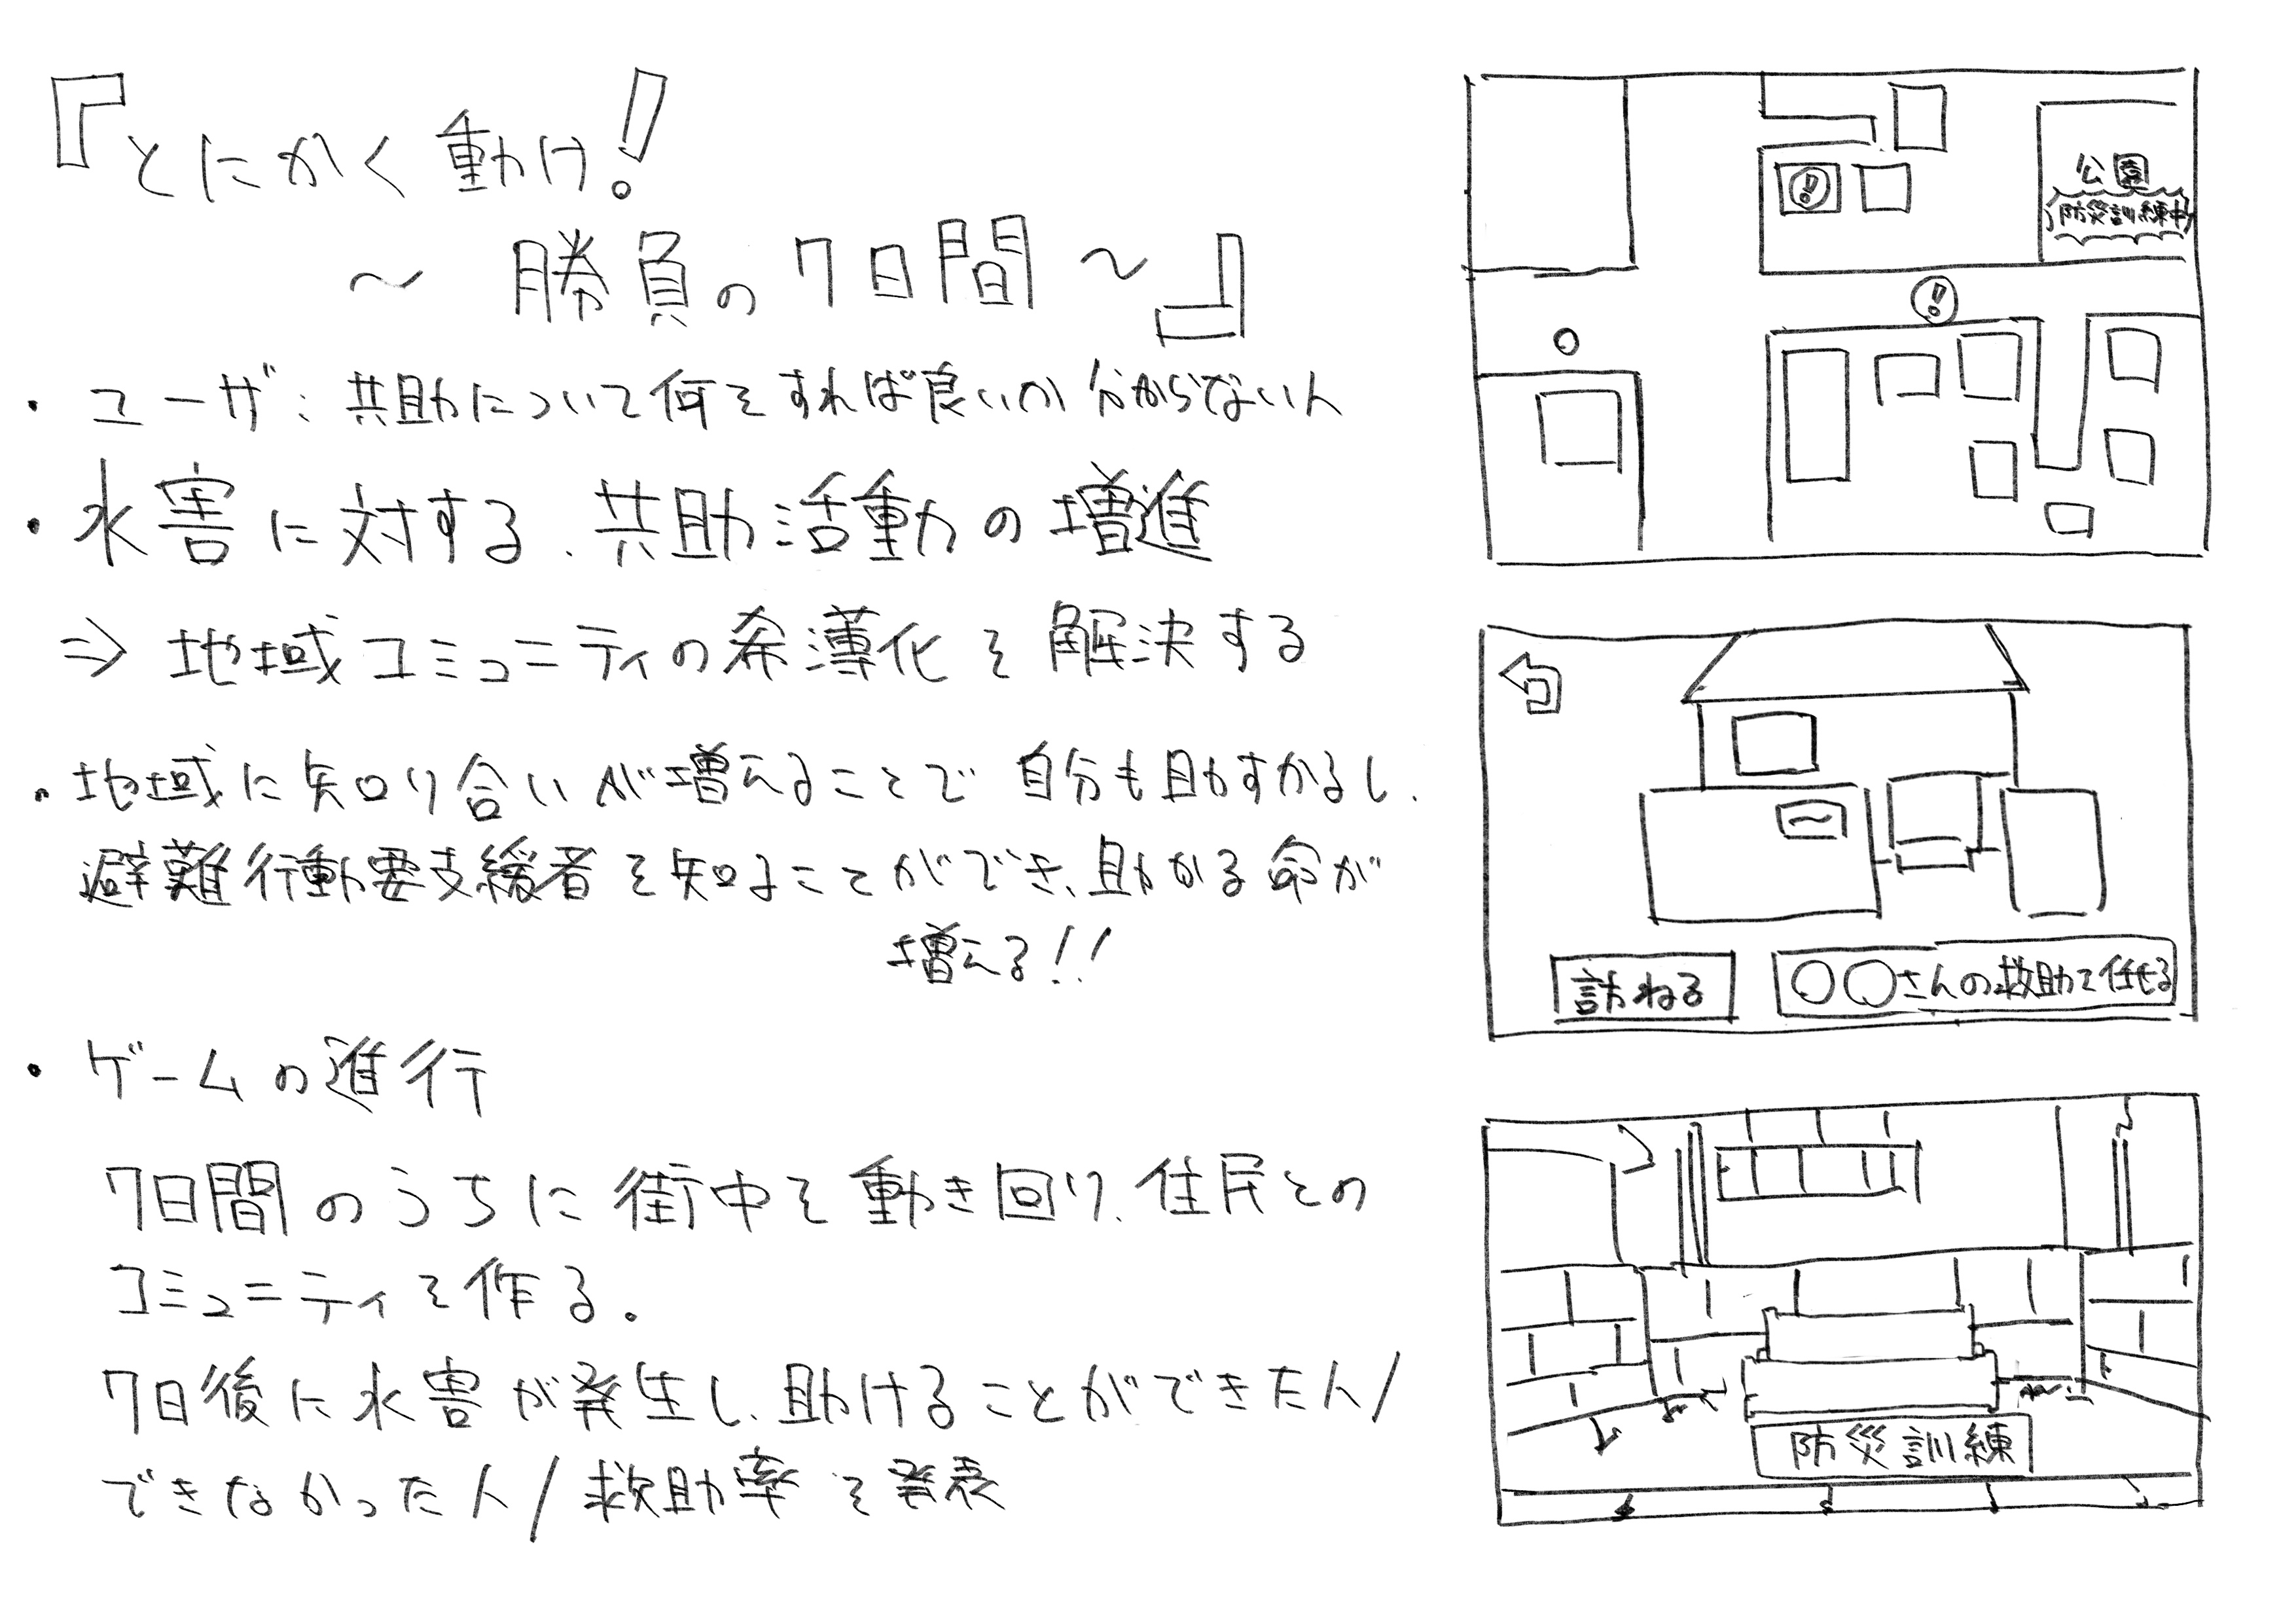 『とにかく動け!
～勝負の7日間～』
・ユーザ：共助について何をすれば良いか分からない人
・水害に対する、共助活動の増進
⇒地域コミュニティの希薄化を解決する
・地域に知り合いが増えることで自分も助すかるし、
避難行動要支援者を知ることができ、助かる命が
増える!!
・ゲームの進行
7日間のうちに街中を動き回り、住民との
コミュニティを作る。
7日後に水害が発生し、助けることができた人/
できなかった人/救助率を発表
!
公園
防災訓練中
!
訪ねる
○○さんの救助を任せる
防災訓練